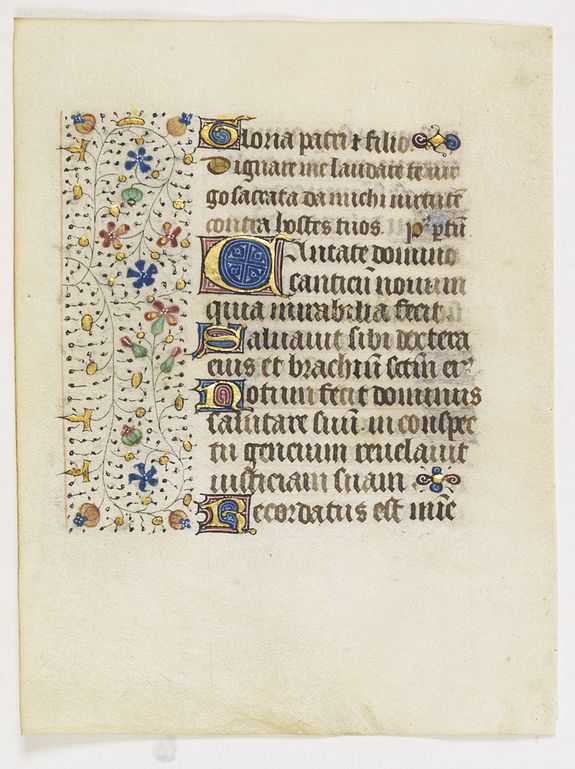 Gloria patri & filio
Dignare me laudare te uir
go sacrata da michi uirtute
contra hostes tuos. ps̄
Cantate domino
canticū nouum
quia mirabilia fecit.
Saluauit sibi dextera
eius et brachiū sctm̄ ei⁹
Notum fecit dominus
salutare suū in conspec
tu gencium reuelauit
iusticiam suam
Recordatus est mie